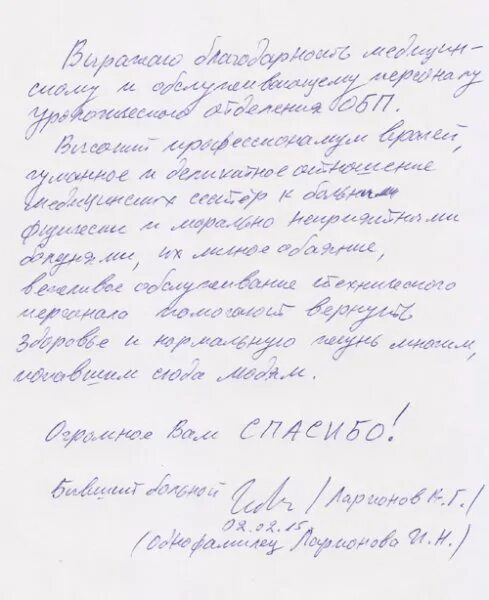 Выражаю благодарность медицин-
скому и обслуживающему персоналу
урологического отделения ОБП.
Высокий профессионализм врачей,
гуманное и деликатное отношение
медицинских сестёр к больным
физически и морально неприятными
болезнями, их личное обаяние,
вежливое обслуживание технического
персонала помогают вернуть
здоровье и нормальную жизнь многим,
попавшим сюда людям.
Огромное Вам СПАСИБО!
Бывший больной /Ларионов К.Г./
02.02.15
(Однофамилец Ларионова И.Н.)